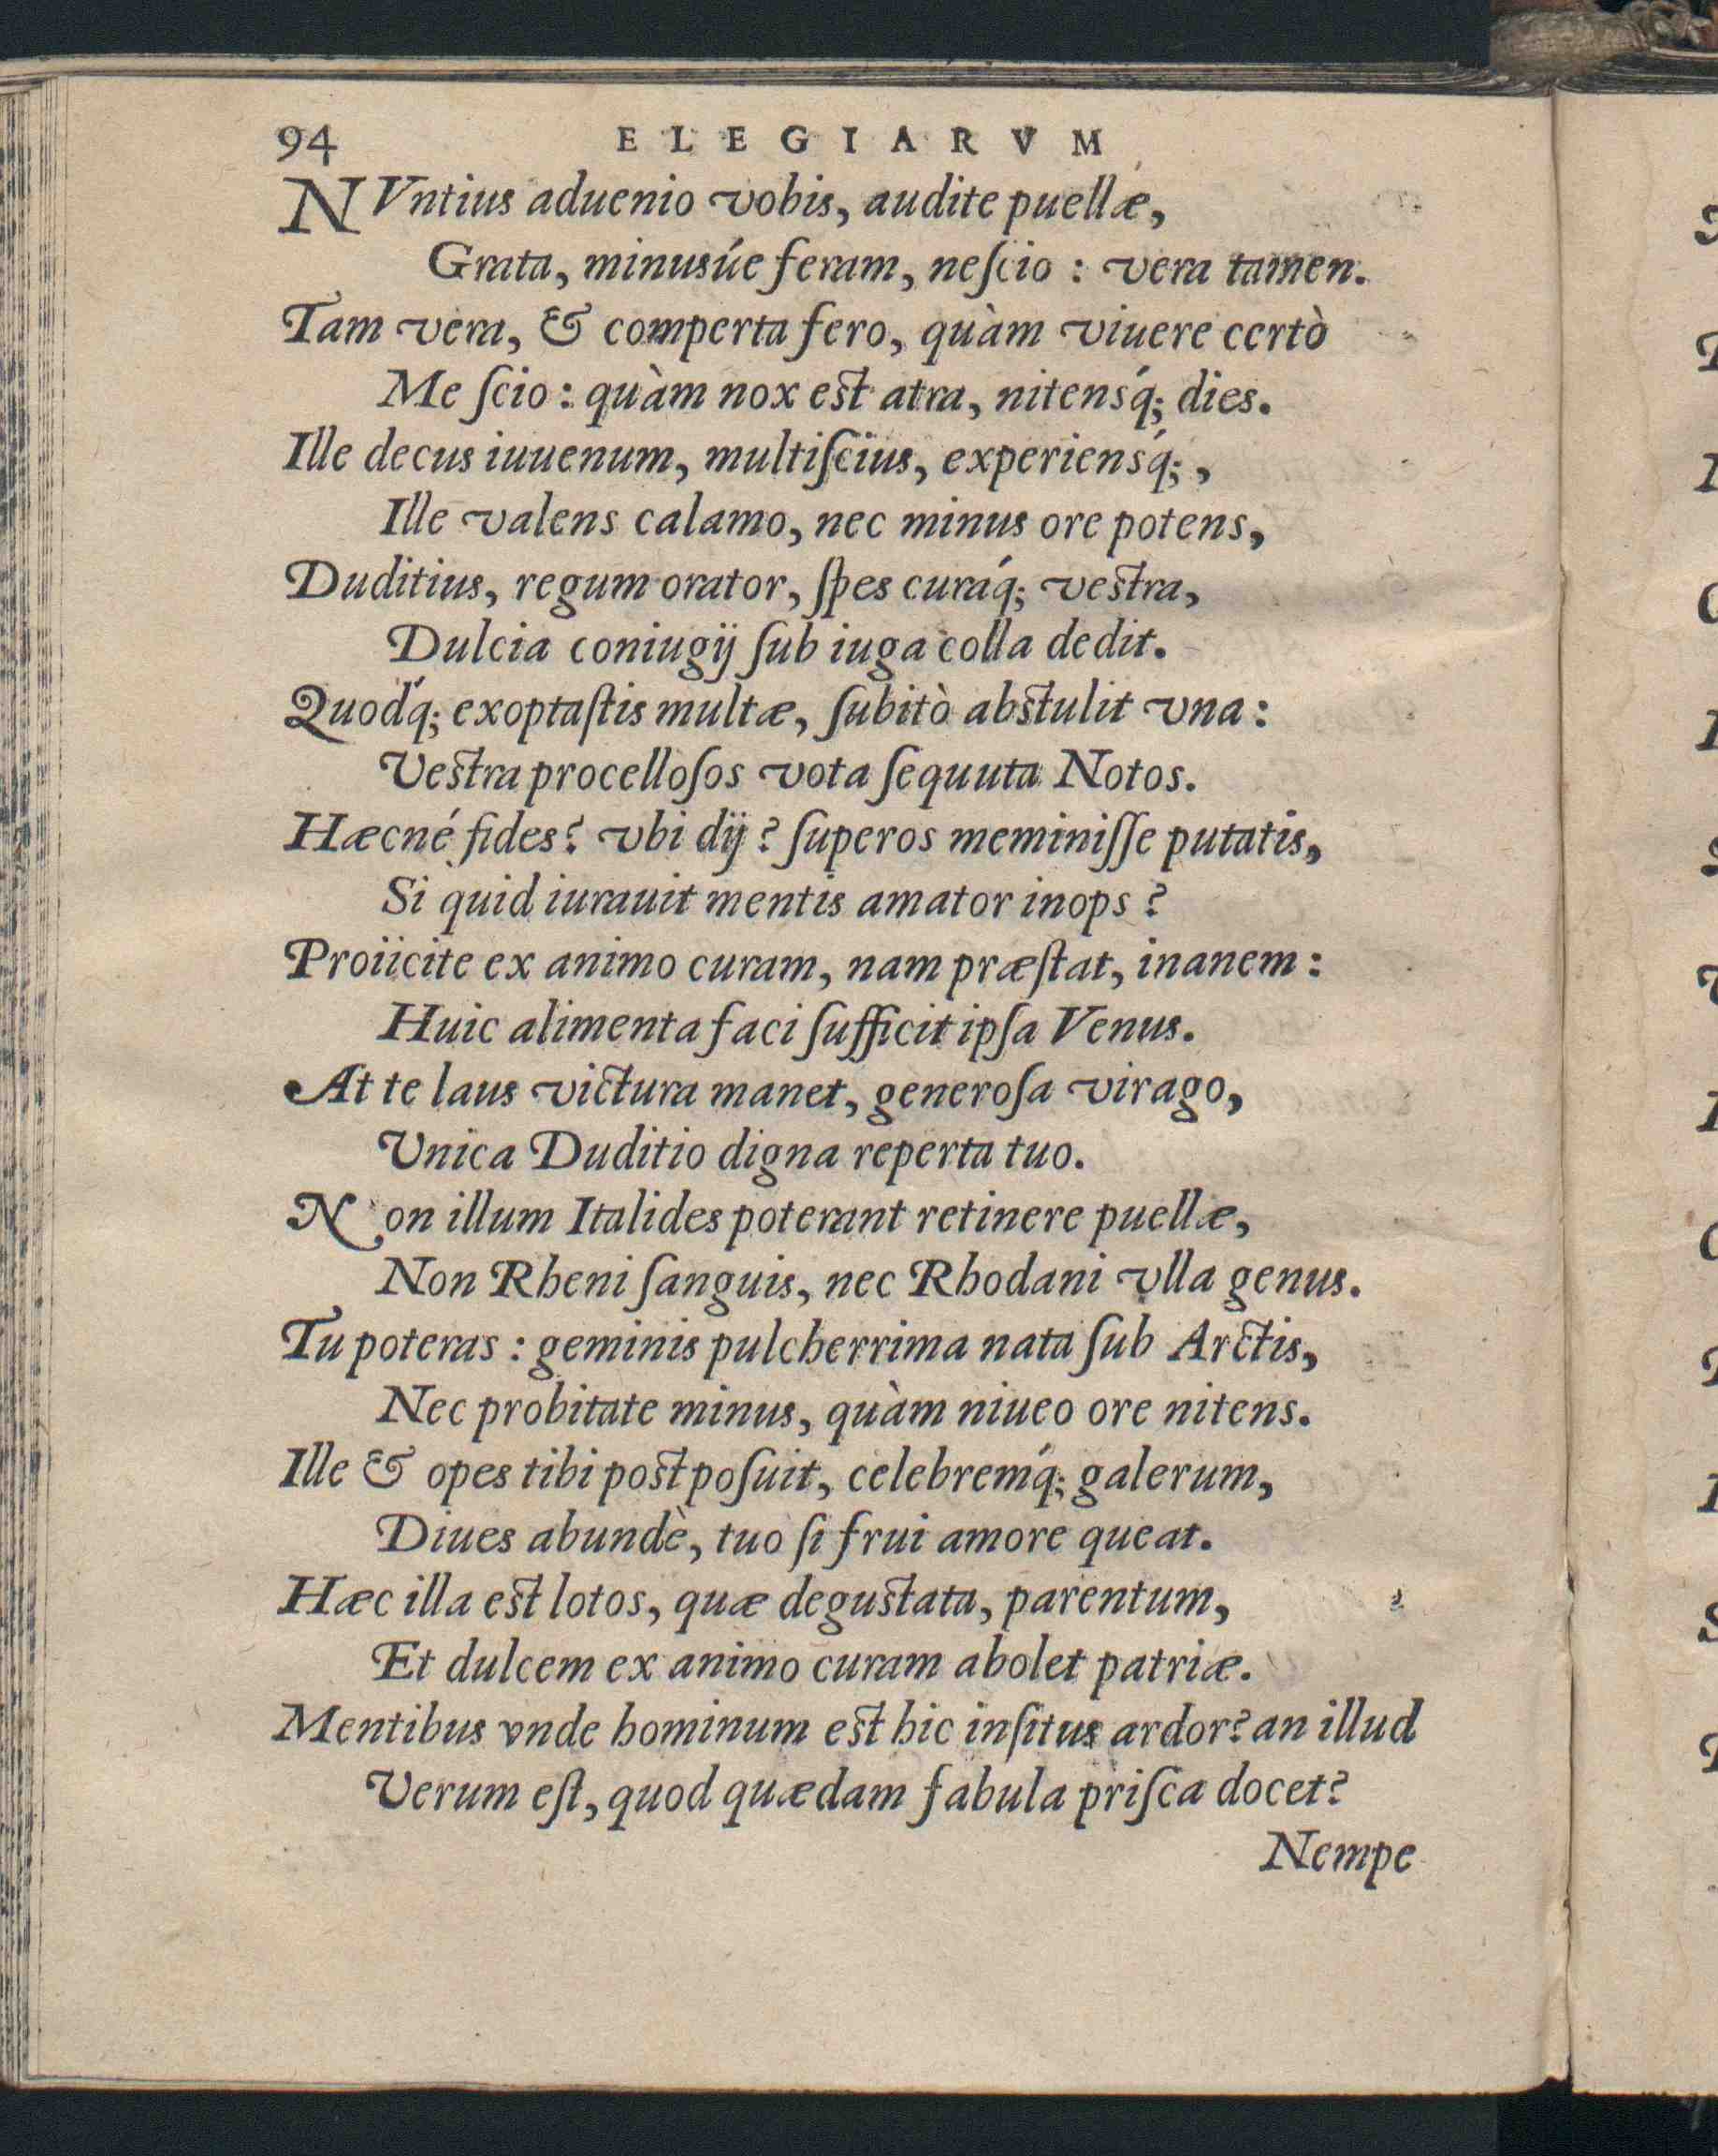 94 ELEGIARVM
NVntius aduenio vobis, audite puellæ,
Grata, minusúe feram, neſcio : vera tamen.
Tam vera, & comperta fero, quàm viuere certò
Me ſcio : quàm nox est atra, nitensq́; dies.
Ille decus iuuenum, multiſcius, experiensq́;,
Ille valens calamo, nec minus ore potens,
Duditius, regum orator, ſpes curaq́; vestra,
Dulcia coniugij ſub iuga colla dedit.
Quodq́; exoptaſtis multæ, ſubitò abstulit vna :
Vestra procelloſos vota ſequuta Notos.
Hæcné fides? vbi dij? ſuperos meminiſſe putatis,
Si quid iurauit mentis amator inops ?
Proiicite ex animo curam, nam præſtat, inanem :
Huic alimenta faci ſufficit ipſa Venus.
At te laus victura manet, generoſa virago,
Vnica Duditio digna reperta tuo.
Non illum Italides poterant retinere puellæ,
Non Rheni ſanguis, nec Rhodani vlla genus.
Tu poteras : geminis pulcherrima nata ſub Arctis,
Nec probitate minus, quàm niueo ore nitens.
Ille & opes tibi postpoſuit, celebremq́; galerum,
Diues abundè, tuo ſi frui amore queat.
Hæc illa est lotos, quæ degustata, parentum,
Et dulcem ex animo curam abolet patriæ.
Mentibus vnde hominum est hic inſitus ardor? an illud
Verum eſt, quod quædam fabula priſca docet?
Nempe